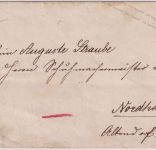 Auguste Straube
Herrn Schuhmachermeister
Nordha
Altendorf